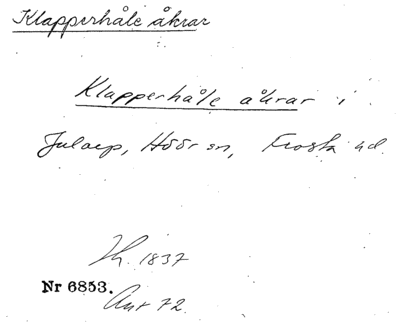 Klapperhåle åkrar
Klapperhåle åkrar i
Jularp, Höör sn, Frosta hd.
Lh. 1837
Nr 6853.
Ant 72.